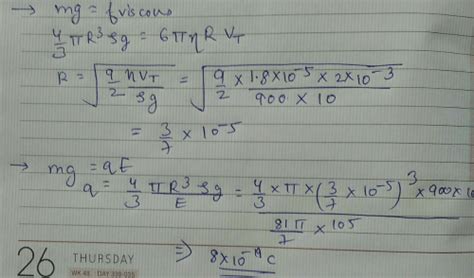 → mg = fviscous
4/3 πR³ρg = 6πηR V_T
R = √(9/2 ηV_T/ρg) = √(9/2 × 1.8×10⁻⁵ × 2×10⁻³ / 900 × 10)
= 3/7 × 10⁻⁵
→ mg = qE
q = 4/3 πR³ρg / E = 4/3 × π × (3/7 × 10⁻⁵)³ × 900 × 10 / 81π/7 × 10⁵
⇒ 8×10⁻¹⁹ C
26 THURSDAY
WK 48